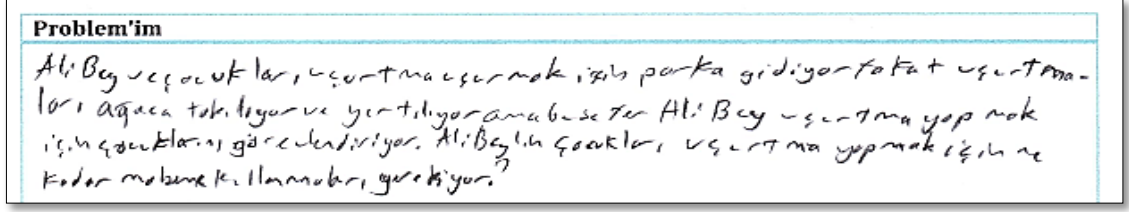 Problem'im
Ali Bey ve çocukları, uçurtma uçurmak için parka gidiyor fakat uçurtma-
ları ağaca takılıyor ve yırtılıyor ama bu sefer Ali Bey uçurtma yapmak
için çocuklarını görevlendiriyor. Ali Bey'in çocukları, uçurtma yapmak için ne
kadar malzeme kullanmaları gerekiyor?